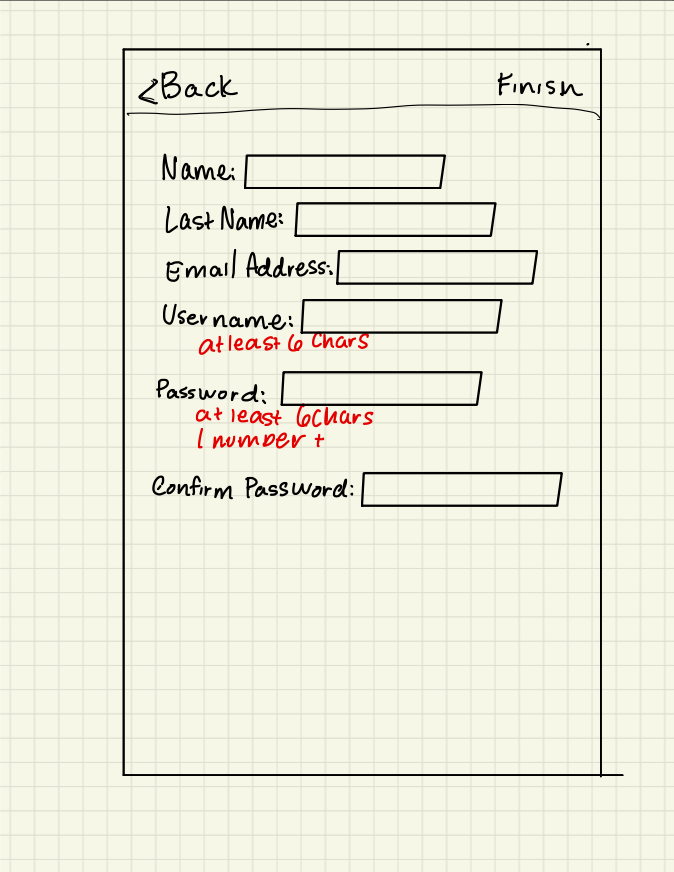 <Back
Finish
Name:
Last Name:
Email Address:
Username:
at least 6 Chars
Password:
at least 6 Chars
1 number +
Confirm Password: